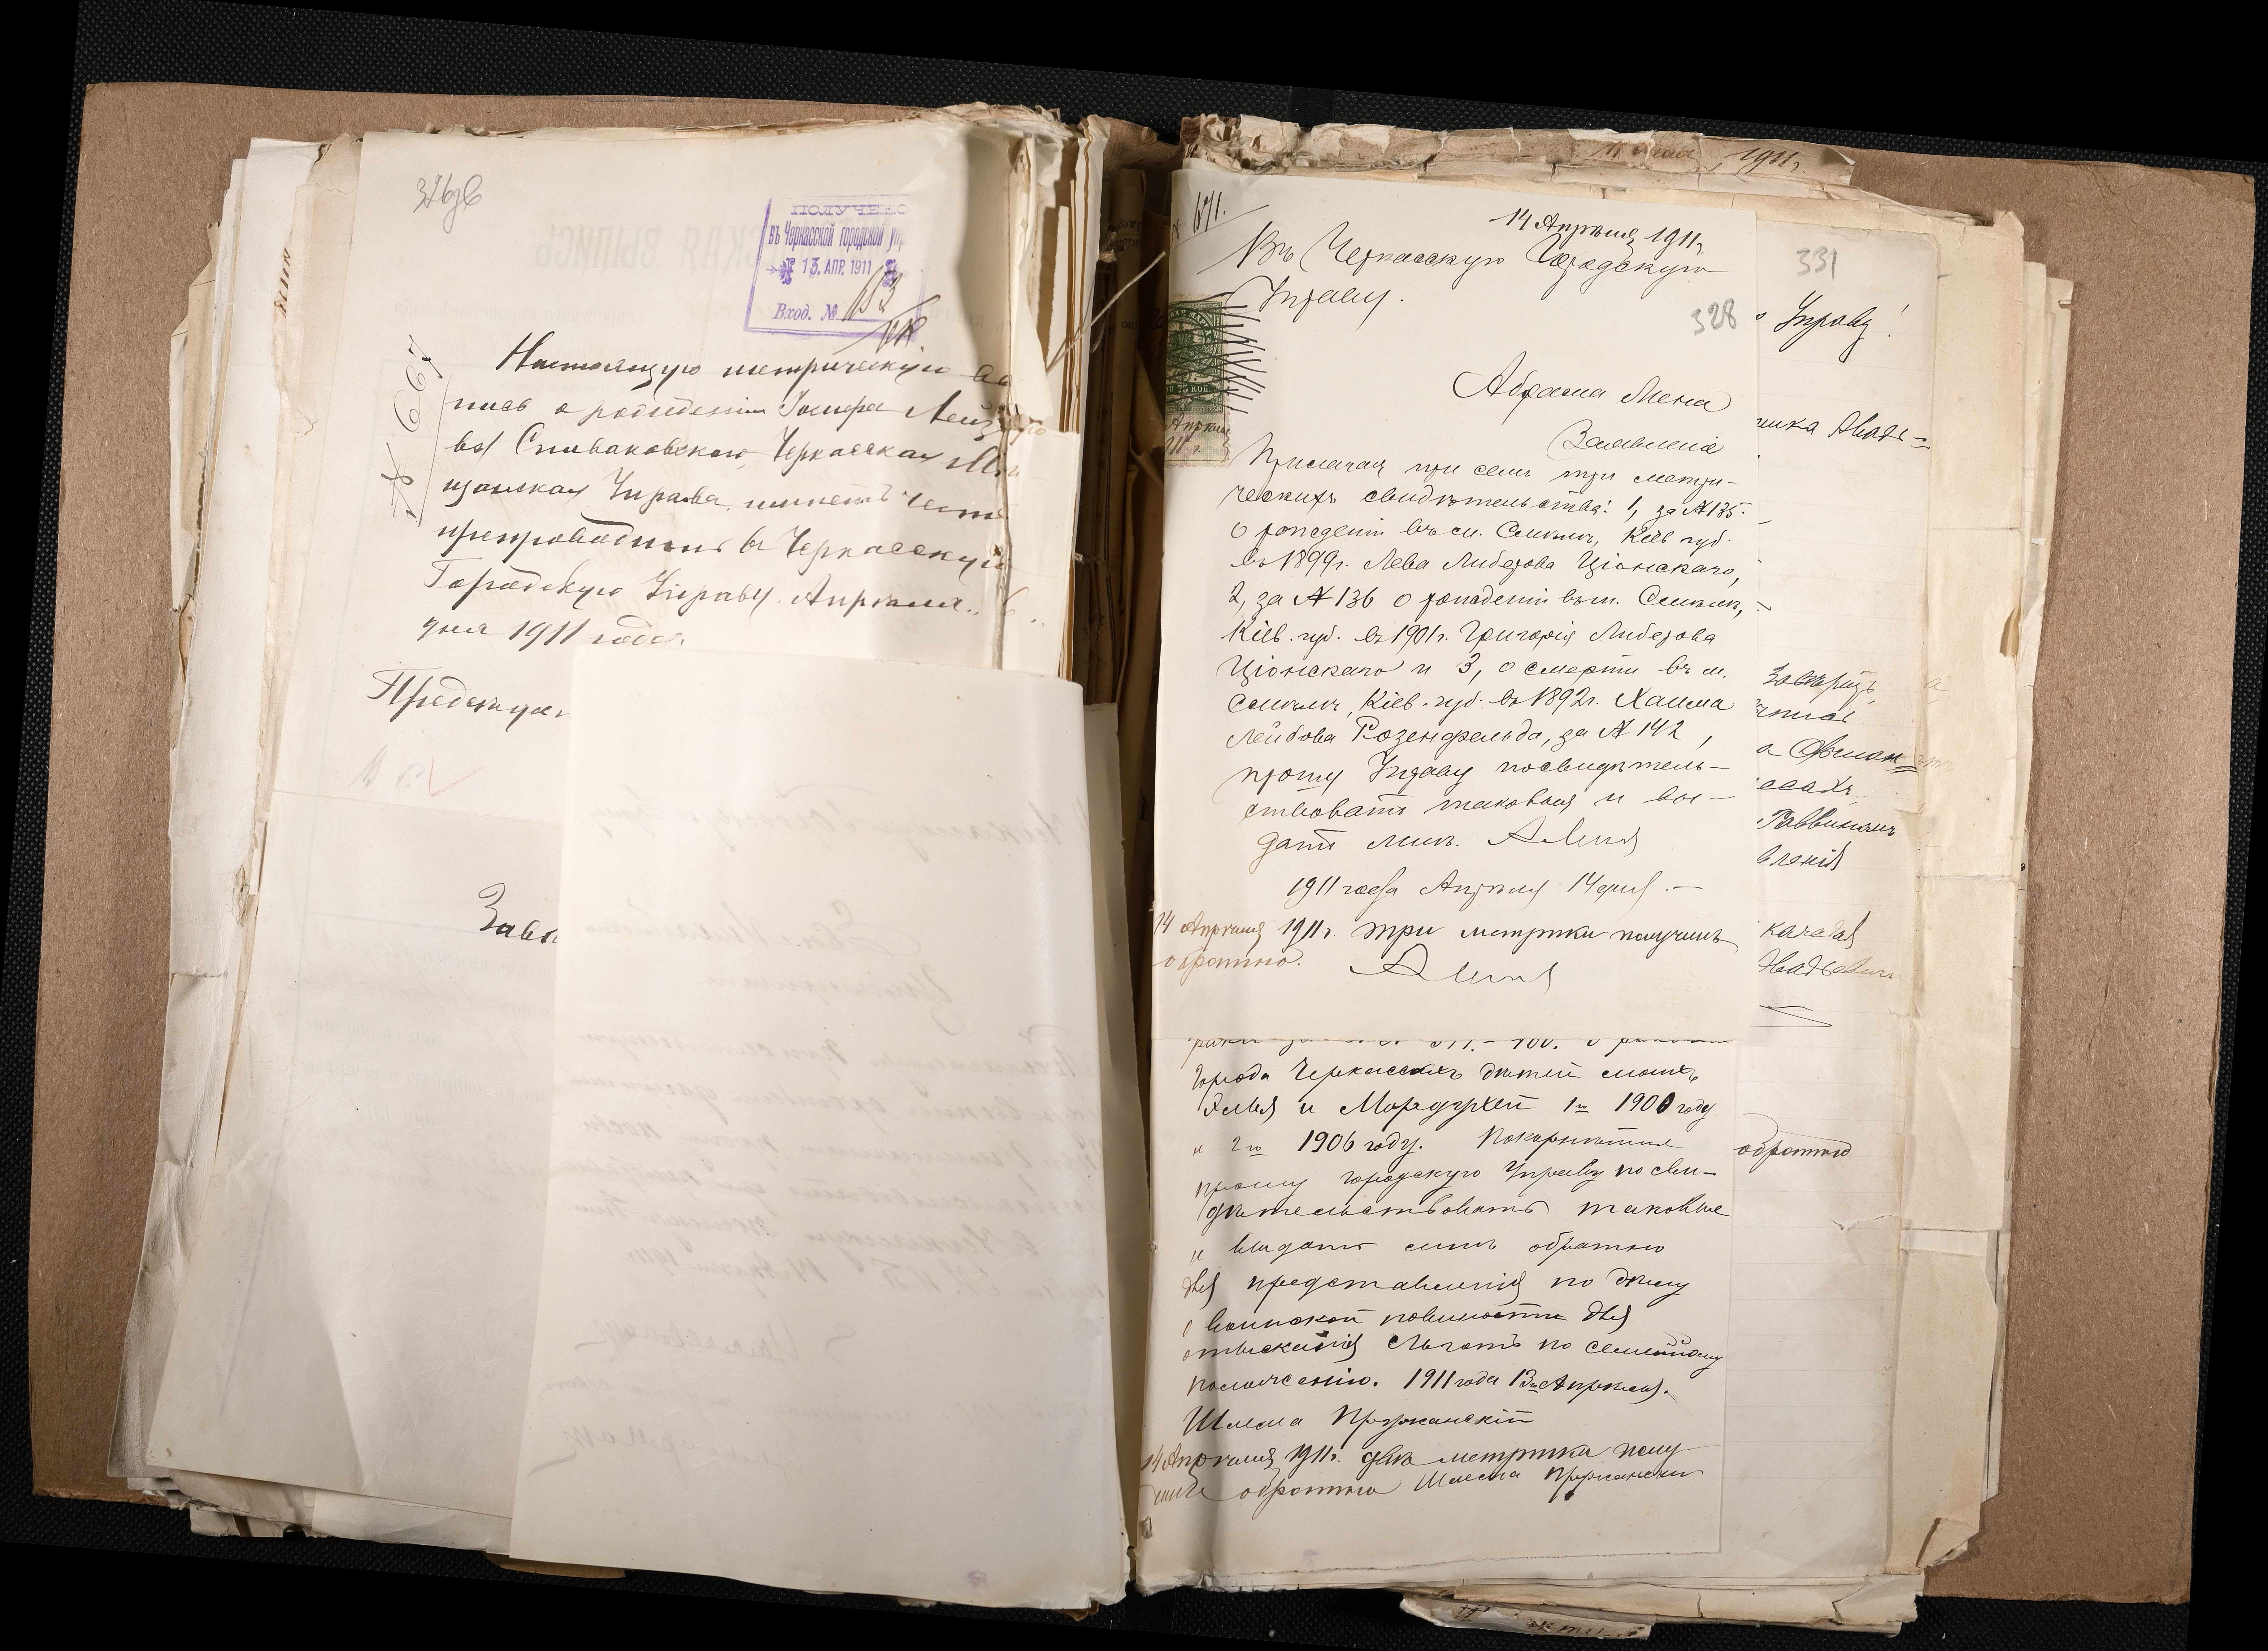 326 зв
ПОЛУЧЕНО
въ Черкасской городской упр
13. АПР. 1911
Вход. №
№ 667
Настоящую метрическую вы
пись о рожденіи Іосифа Лейз
ва Спиваковскаго, Черкасская Мѣ
щанская Управа, имѣетъ честь
препроводить въ Черкасскую
Городскую Управу. Апрѣля
дня 1911 года.
Предсѣда
Завѣ
1911 г.
№ 671.
14 Апрѣля 1911 г.
Въ Черкасскую Городскую
Управу.
328
Абрама Мена
Заявленіе
Прилагая при семъ три метри-
ческихъ свидѣтельства: 1, за № 135.
О рожденіи въ м. Смѣлѣ, Кіев. губ.
въ 1899 г. Лева Либерова Ціонскаго,
2, за № 136 о рожденіи въ м. Смѣлѣ,
Кіев. губ. въ 1901 г. Григорія Либерова
Ціонскаго и 3, о смерти въ м.
Смѣлѣ, Кіев. губ. въ 1892 г. Хаима
Лейбова Розенфельда, за № 142,
прошу Управу посвидѣтель-
ствовать таковыя и вы-
дать мнѣ. А Мена
1911 года Апрѣля 14 дня. —
14 Апрѣля 1911 г. три метрики получилъ
обратно. А Мена
города Черкассахъ дѣтей моихъ
и Мордухей 1й 1900 году
и 2й 1906 году. Покорнѣйше
прошу городскую Управу посви-
дѣтельствовать таковые
и выдать мнѣ обратно
для представленія по дѣлу
о воинской повинности для
отысканія льготъ по семейному
положенію. 1911 года 13го Апрѣля.
Шлема Пружанскій
14 Апрѣля 1911 г. двѣ метрики полу
чилъ обратно Шлема Пружанскій
331
Управу!
Раввиномъ
вленія
обратно